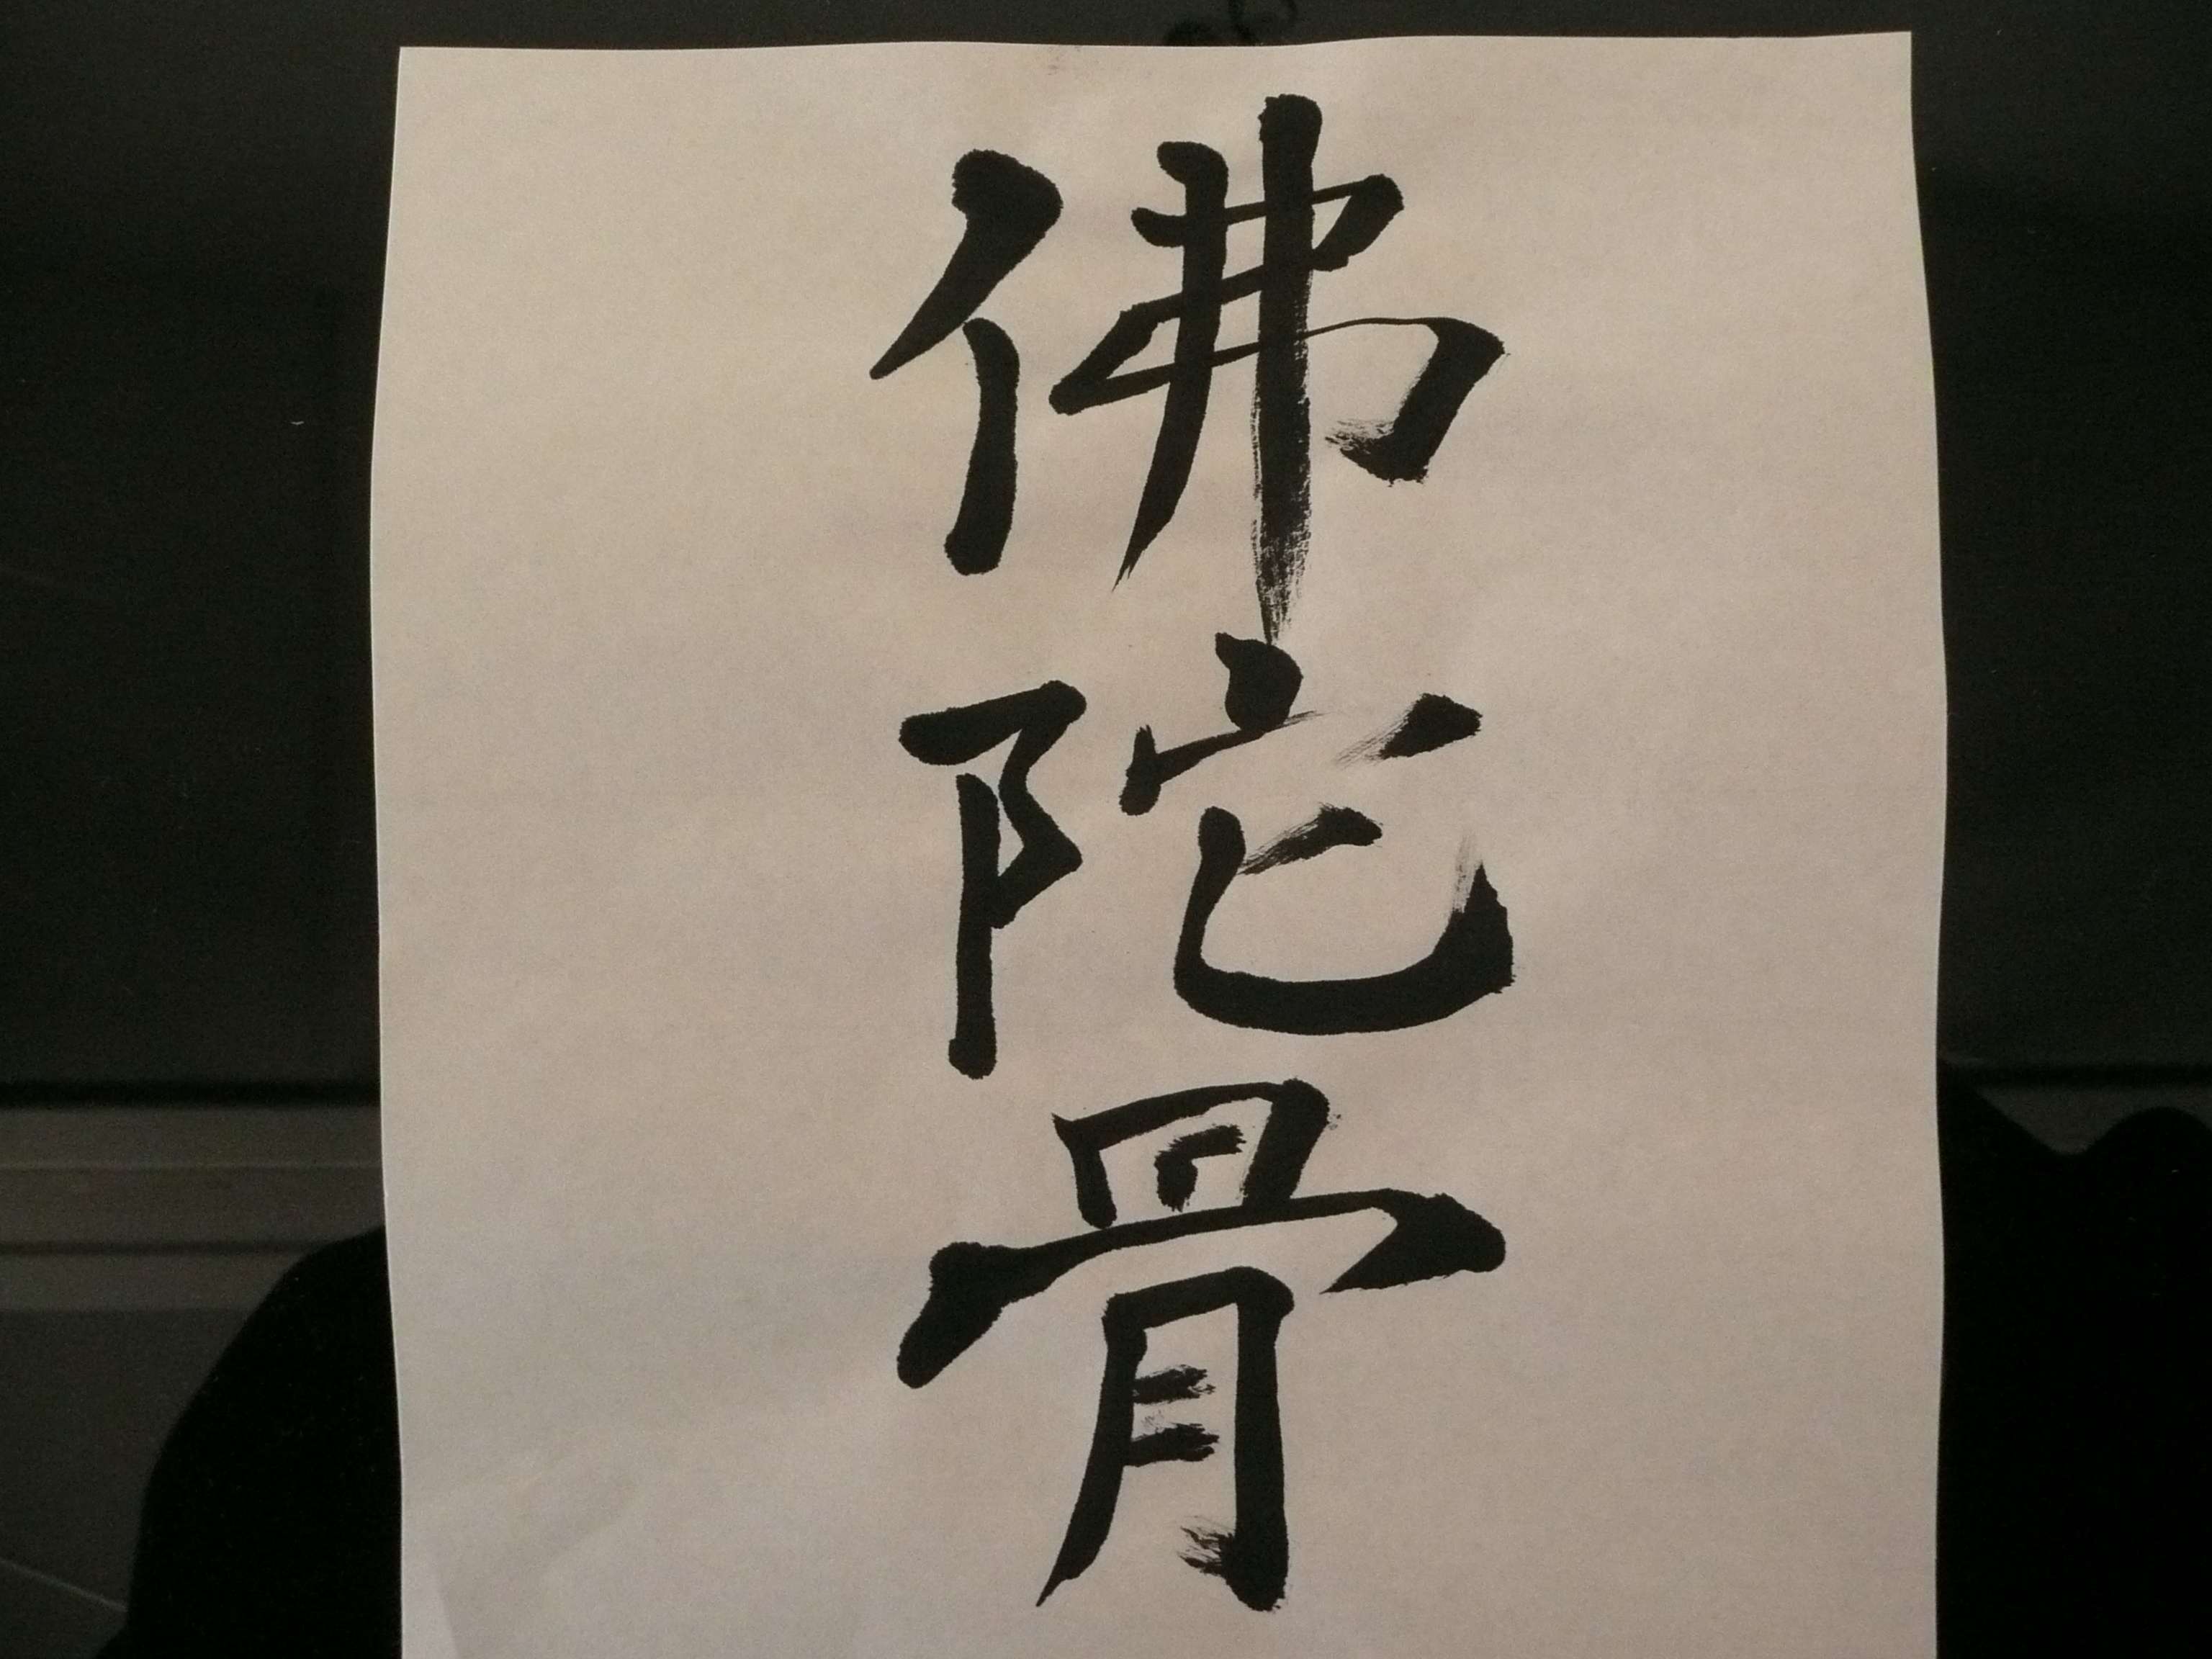 佛陀骨